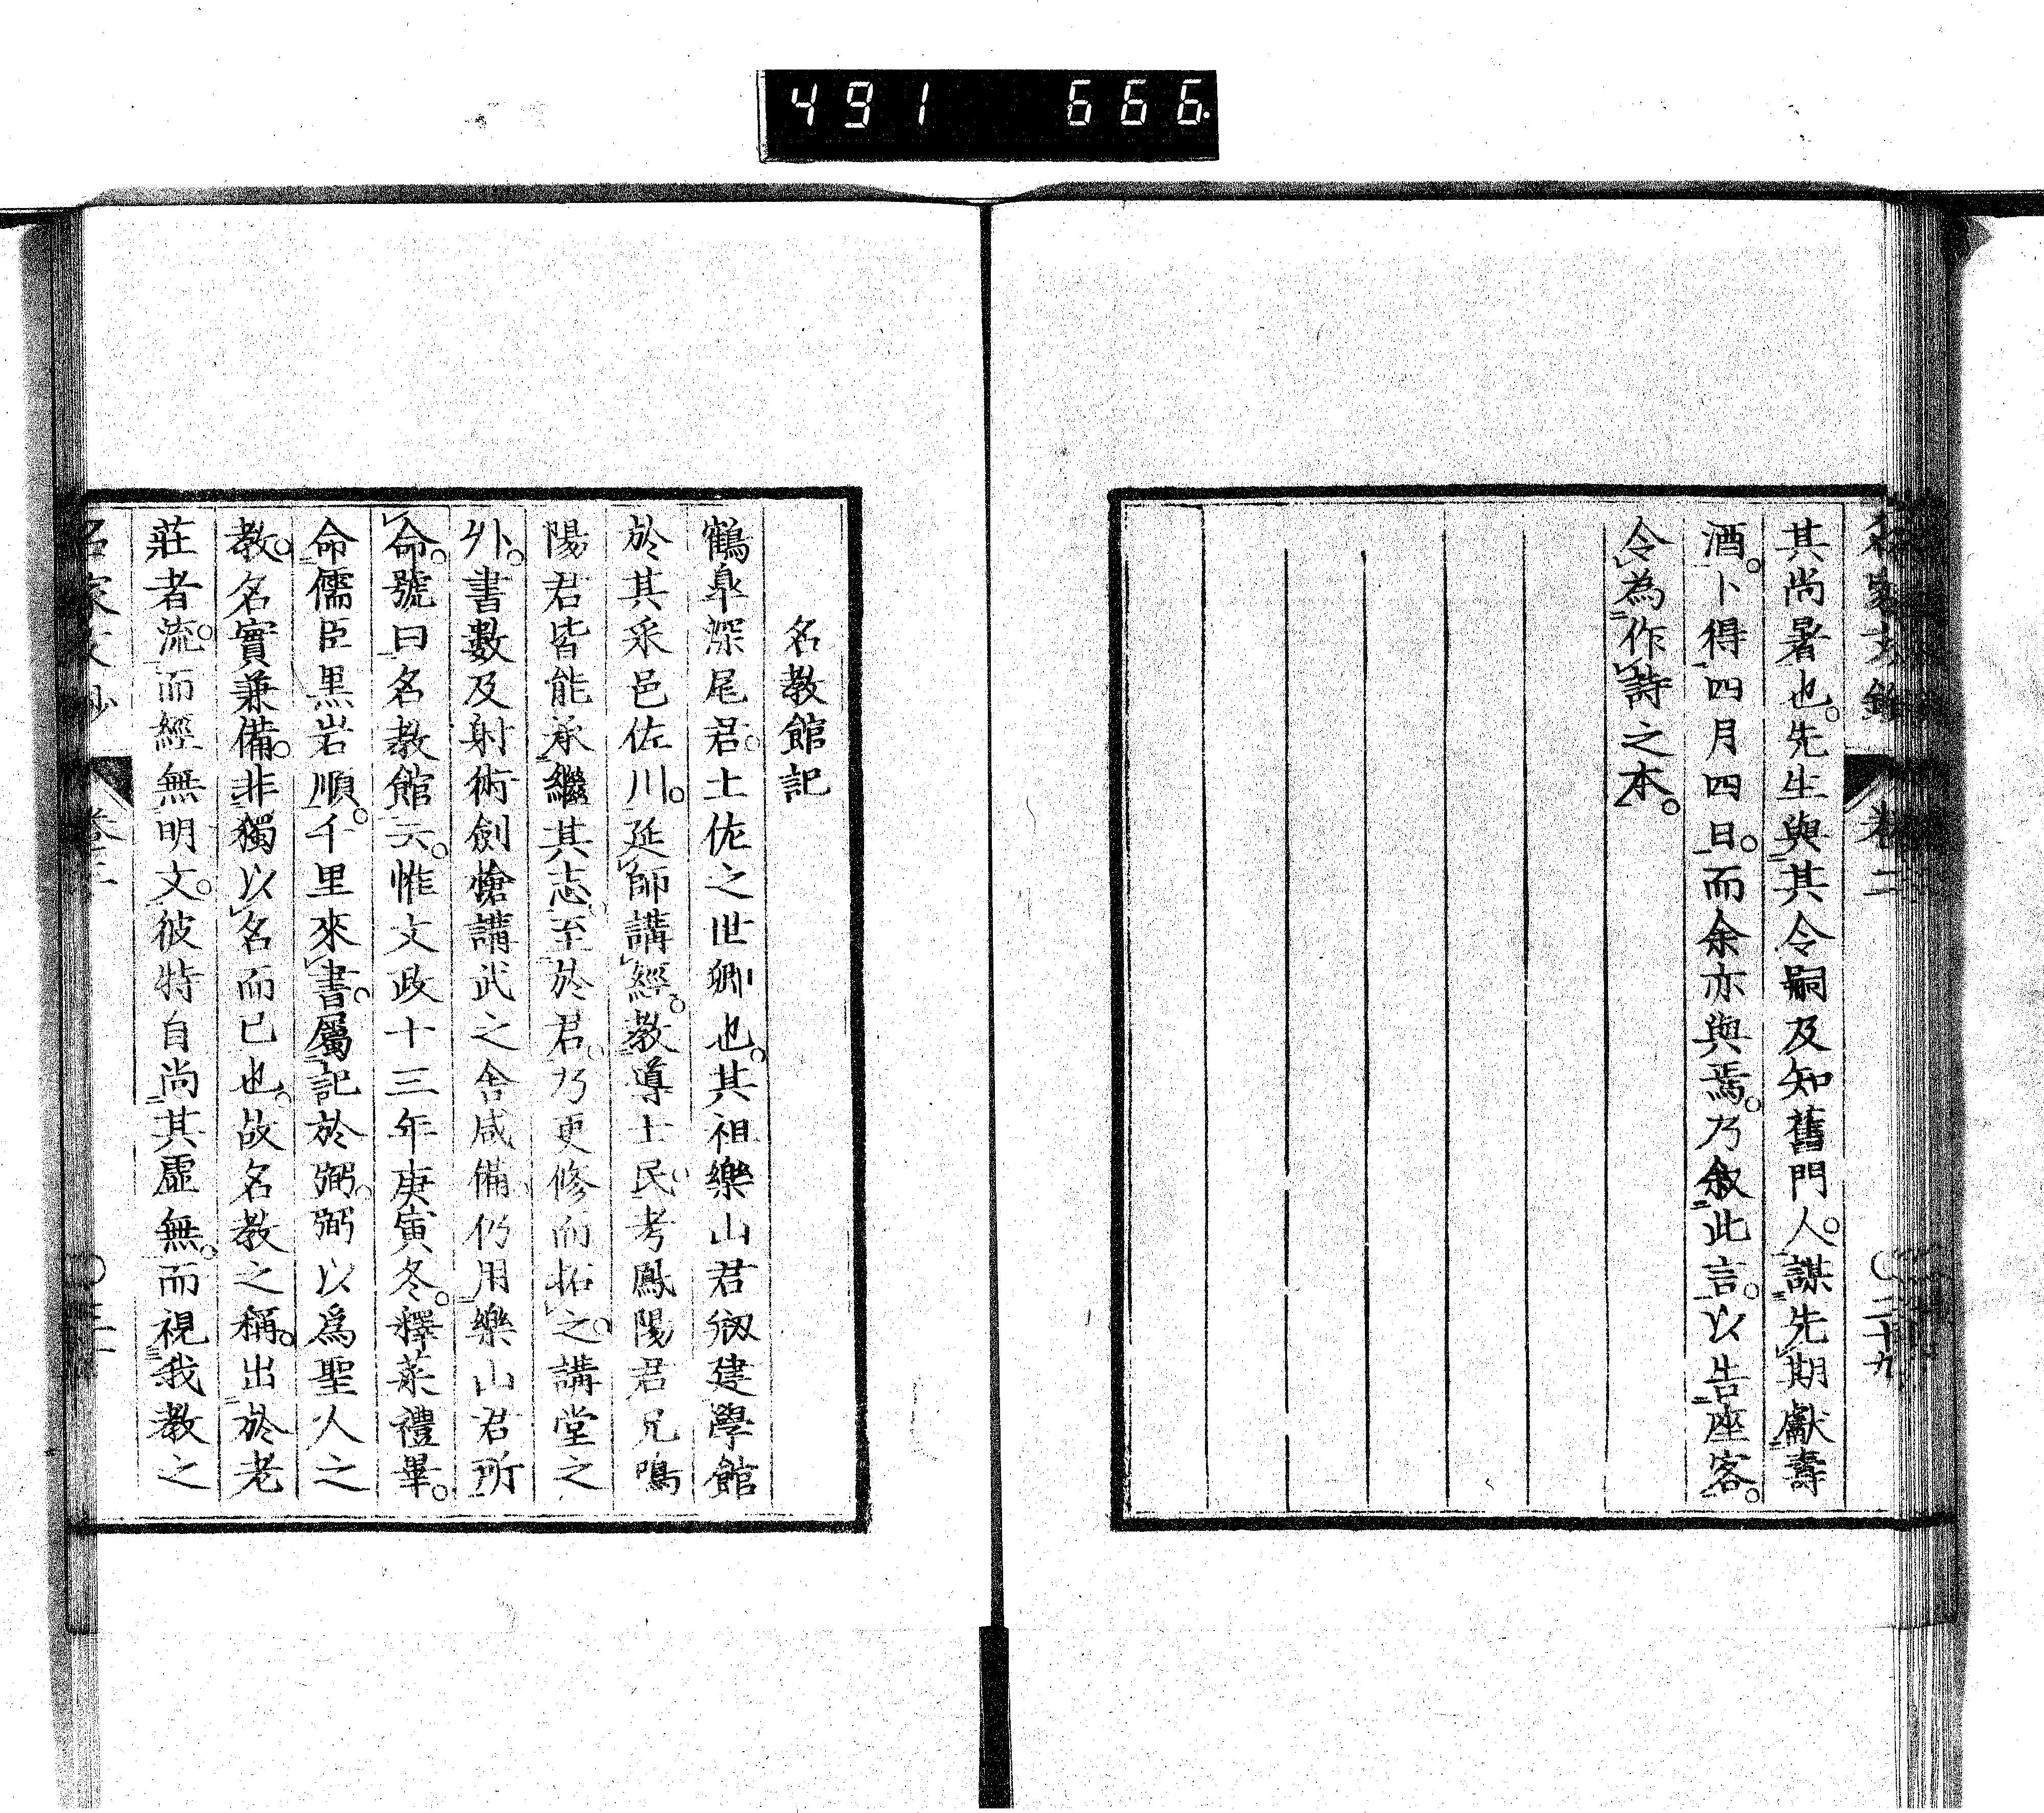 491 666.
名家文鈔 卷二 〇二十九
其尚暑也。先生與其令嗣及知舊門人。謀先期獻壽
酒。卜得四月四日。而余亦與焉。乃叙此言。以告座客。
令為作詩之本。
名教館記
鶴皐深尾君。土佐之世卿也。其祖樂山君剏建學館
於其采邑佐川。延師講經。教導士民。考鳳陽君兄鳴
陽君皆能承繼其志。至於君。乃更修而拓之。講堂之
外。書數及射術劍槍講武之舍咸備。仍用樂山君所
命。號曰名教館云。惟文政十三年庚寅冬。釋菜禮畢。
命儒臣黒岩順。千里來書。屬記於弼。弼以爲聖人之
教。名實兼備。非獨以名而已也。故名教之稱。出於老
莊者流。而經無明文。彼特自尚其虛無。而視我教之
名家文鈔 卷二